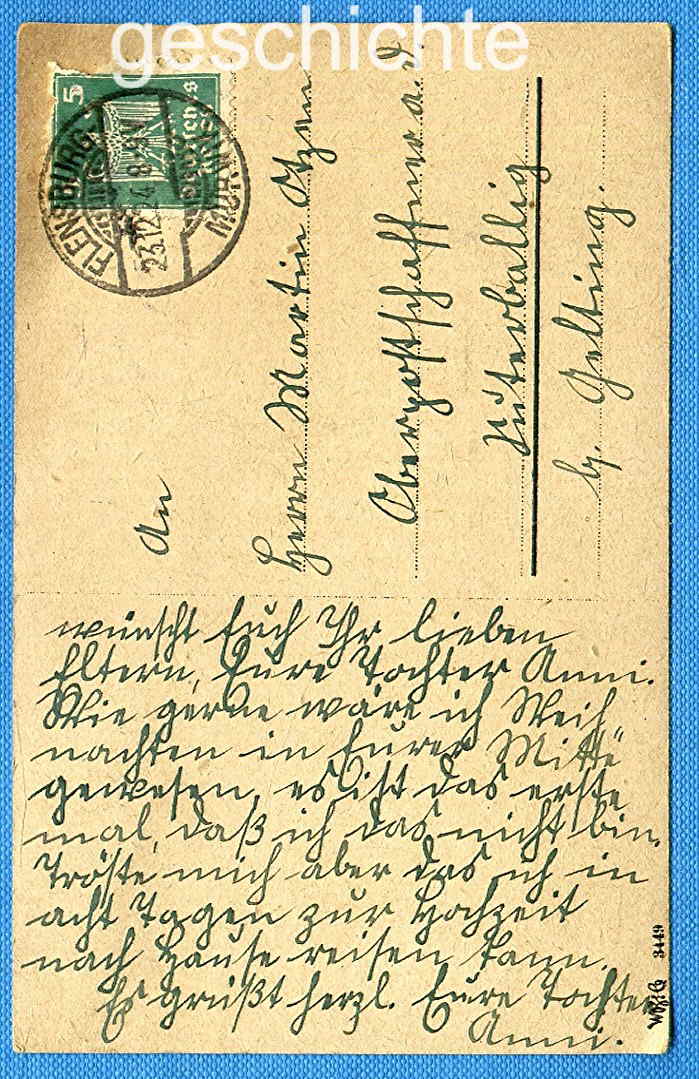 geschichte
5
Deutsches Reich
FLENSBURG
23.12.24 8-9V
An
Herrn Martin Otzen
Oberpostschaffner a.D.
Süterballig
b. Gelting.
wünscht Euch Ihr lieben
Eltern, Eure Tochter Anni.
Wie gerne wäre ich Weih
nachten in Eurer Mitte
gewesen, es ist das erste
mal, daß ich das nicht bin.
Tröste mich aber das ich in
acht Tagen zur Hochzeit
nach Hause reisen kann.
Es grüßt herzl. Eure Tochter
Anni.
3449